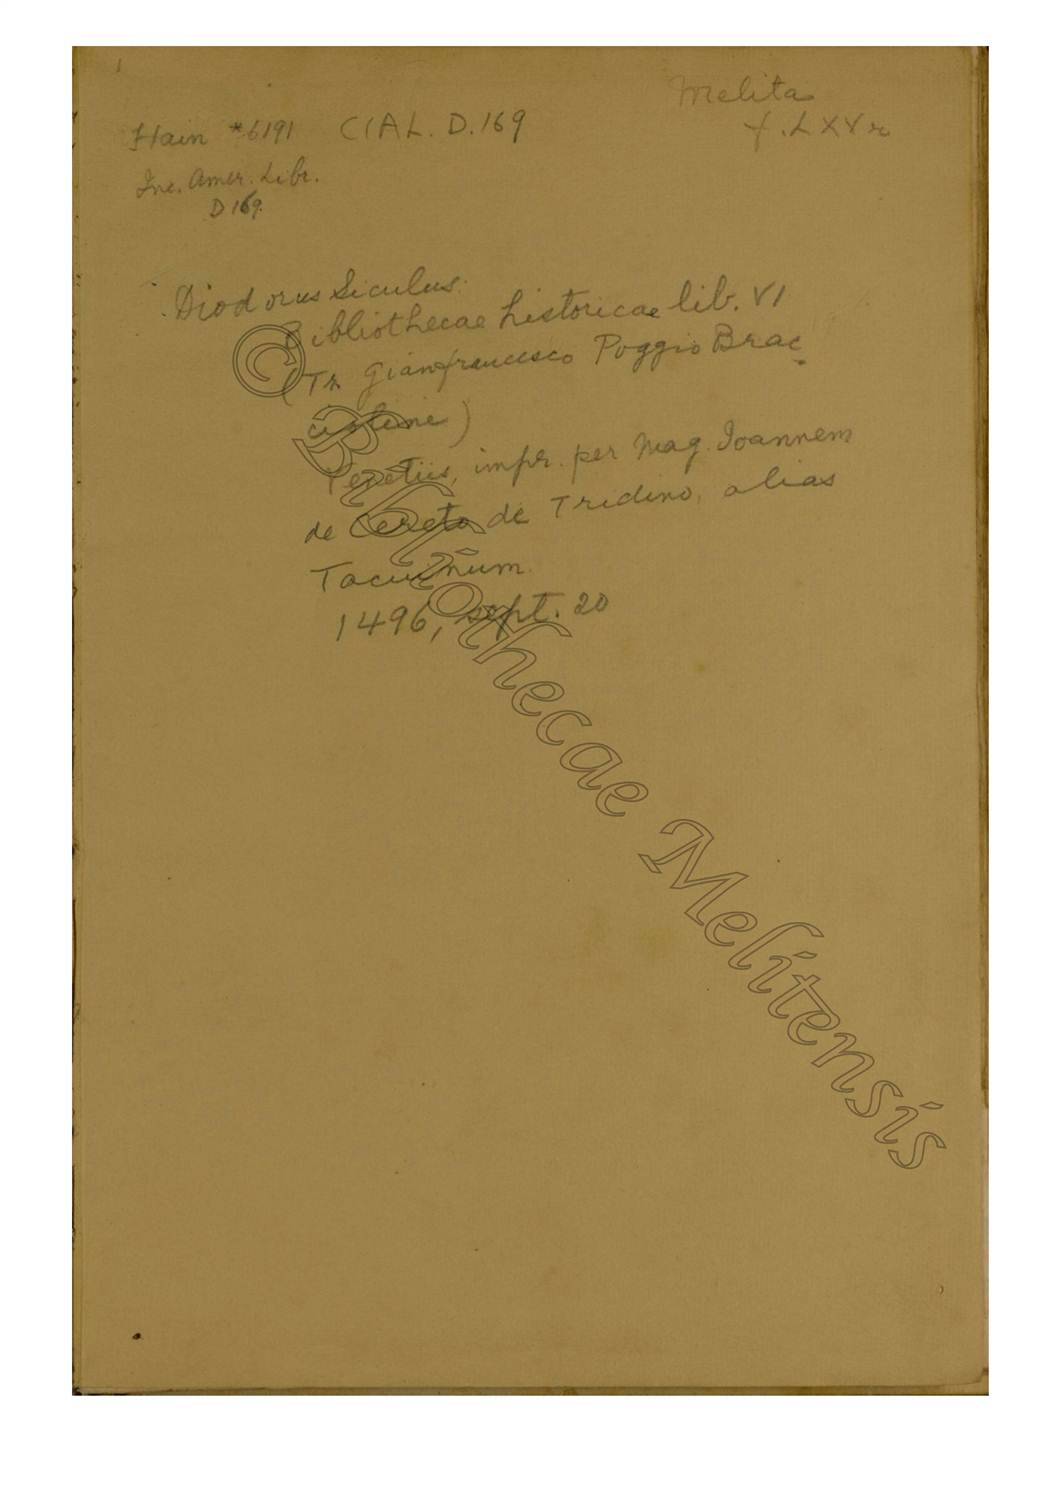 Melita
f. LXV r
Hain *6191 CIAL. D.169
Inc. Amer. Libr.
D 169.
Diodorus Siculus.
Bibliothecae historicae lib. VI
(Tr. Gianfrancesco Poggio Brac
ciolini)
Venetiis, impr. per Mag. Ioannem
de Cereto de Tridino, alias
Tacuinum.
1496, sept. 20
© Bibliothecae Melitensis